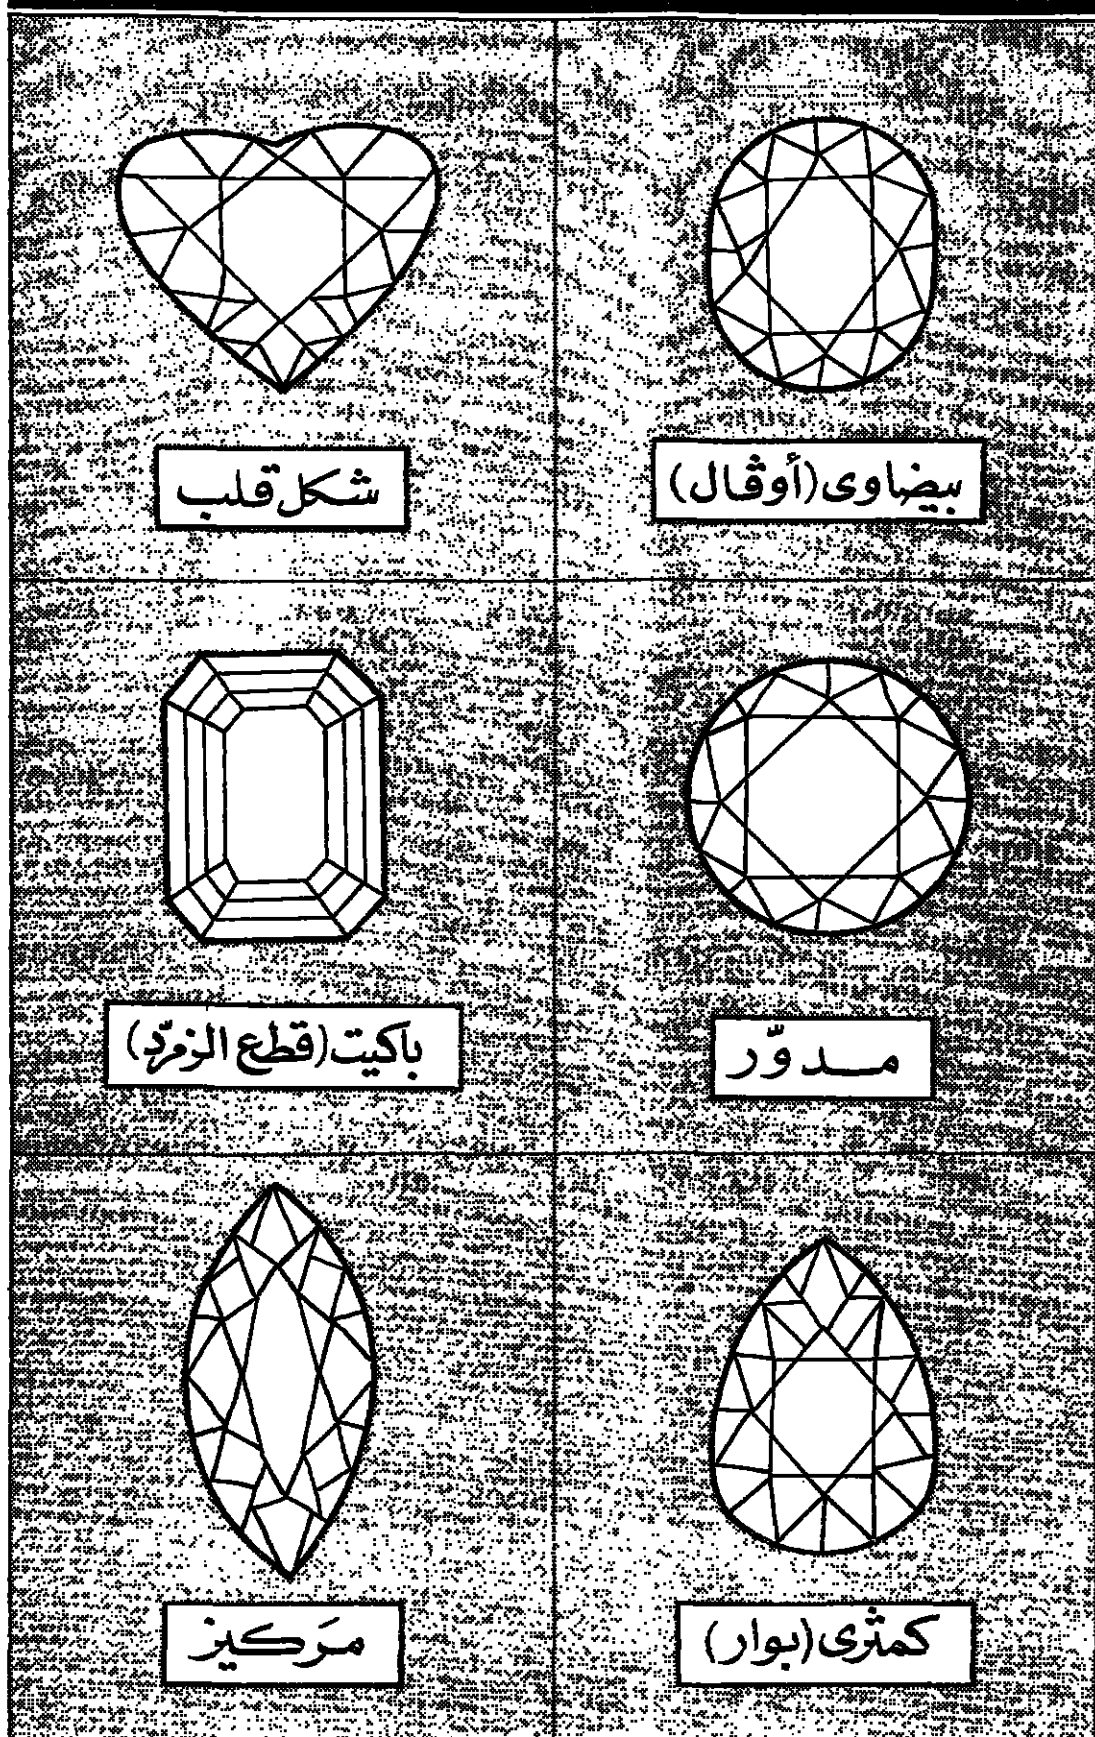 بيضاوى (أوڤال)
شكل قلب
مــدوّر
باكيت (قطع الزمرّد)
كمثرى (بوار)
مَركيز